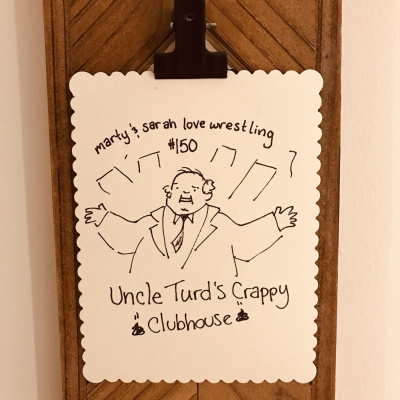 marty & sarah love wrestling
#150
Uncle Turd's Crappy
Clubhouse